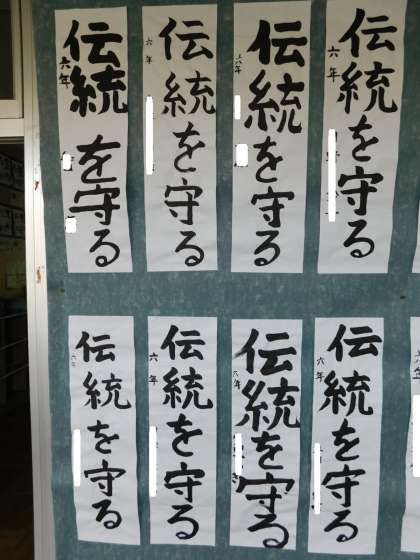 伝統を守る
六年
伝統を守る
六年
伝統を守る
六年
伝統を守る
六年
伝統を守る
六年
伝統を守る
六年
伝統を守る
六年
伝統を守る
六年
六年